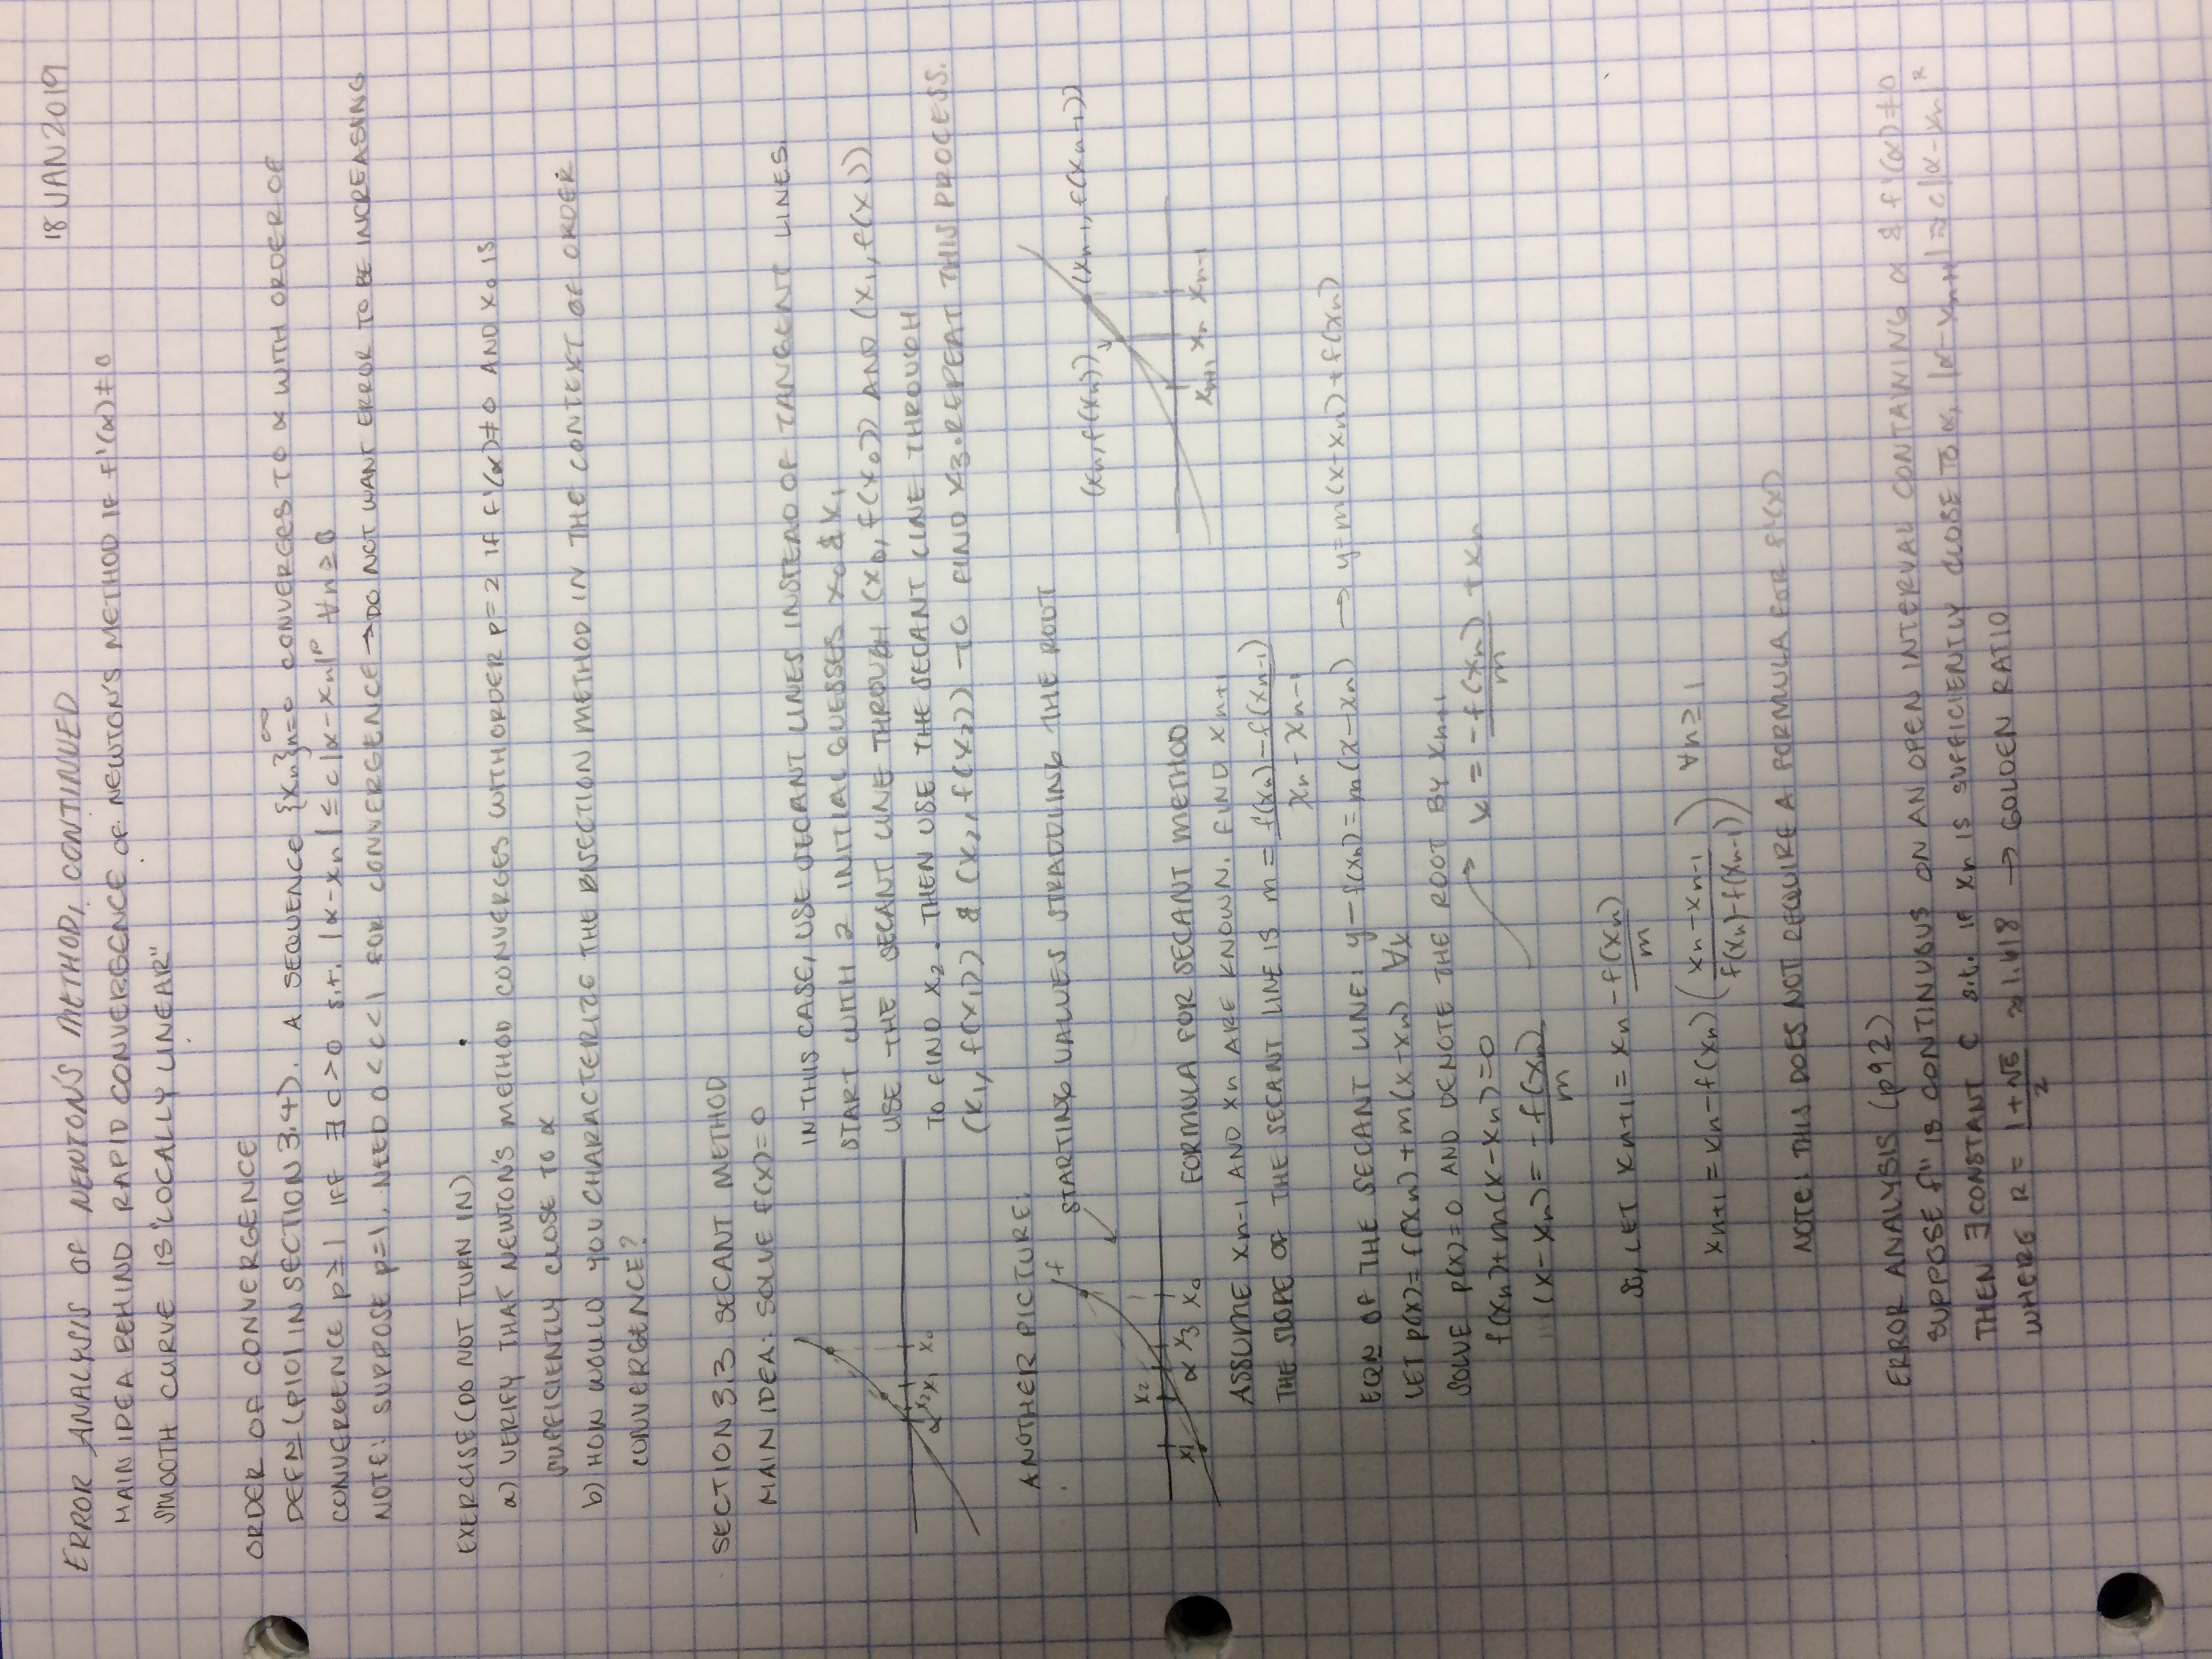 18 JAN 2019
ERROR ANALYSIS OF NEWTON'S METHOD, CONTINUED
MAIN IDEA BEHIND RAPID CONVERGENCE OF NEWTON'S METHOD IF f'(α)≠0
SMOOTH CURVE IS "LOCALLY LINEAR"
ORDER OF CONVERGENCE
DEFN (P101 IN SECTION 3.4). A SEQUENCE {xn}∞n=0 CONVERGES TO α WITH ORDER OF
CONVERGENCE p≥1 IFF ∃ c>0 s.t. |α-xn| ≤ c|α-xn|^p ∀n≥0
NOTE: SUPPOSE p=1. NEED 0<c<1 FOR CONVERGENCE → DO NOT WANT ERROR TO BE INCREASING
EXERCISE (DO NOT TURN IN)
a) VERIFY THAT NEWTON'S METHOD CONVERGES WITH ORDER p=2 IF f'(α)≠0 AND x0 IS
SUFFICIENTLY CLOSE TO α
b) HOW WOULD YOU CHARACTERIZE THE BISECTION METHOD IN THE CONTEXT OF ORDER
CONVERGENCE?
SECTION 3.3 SECANT METHOD
MAIN IDEA: SOLVE f(x)=0
IN THIS CASE, USE SECANT LINES INSTEAD OF TANGENT LINES
START WITH 2 INITIAL GUESSES x0 & x1
USE THE SECANT LINE THROUGH (x0, f(x0)) AND (x1, f(x1))
TO FIND x2. THEN USE THE SECANT LINE THROUGH
(x1, f(x1)) & (x2, f(x2)) TO FIND x3. REPEAT THIS PROCESS.
α x2 x1 x0
ANOTHER PICTURE:
f
STARTING VALUES STRADDLING THE ROOT
(xn, f(xn)) (xn-1, f(xn-1))
x2
x1 α x3 x0
xn+1 xn xn-1
FORMULA FOR SECANT METHOD
ASSUME xn-1 AND xn ARE KNOWN. FIND xn+1
THE SLOPE OF THE SECANT LINE IS m = f(xn)-f(xn-1) / xn - xn-1
EQN OF THE SECANT LINE: y-f(xn)=m(x-xn) → y=m(x-xn)+f(xn)
LET p(x)=f(xn)+m(x-xn) ∀x
SOLVE p(x)=0 AND DENOTE THE ROOT BY xn+1
f(xn)+m(x-xn)=0
(x-xn)= -f(xn) / m
x = -f(xn) / m + xn
SO, LET xn+1 = xn - f(xn) / m
xn+1 = xn-f(xn) (xn-xn-1 / f(xn)-f(xn-1)) ∀n≥1
NOTE: THIS DOES NOT REQUIRE A FORMULA FOR f'(x)
ERROR ANALYSIS (p92)
SUPPOSE f" IS CONTINUOUS ON AN OPEN INTERVAL CONTAINING α & f'(α)≠0
THEN ∃ CONSTANT C s.t. IF xn IS SUFFICIENTLY CLOSE TO α, |α-xn+1| ≈ c|α-xn|^R
WHERE R = 1+√5 / 2 ≈ 1.618 → GOLDEN RATIO